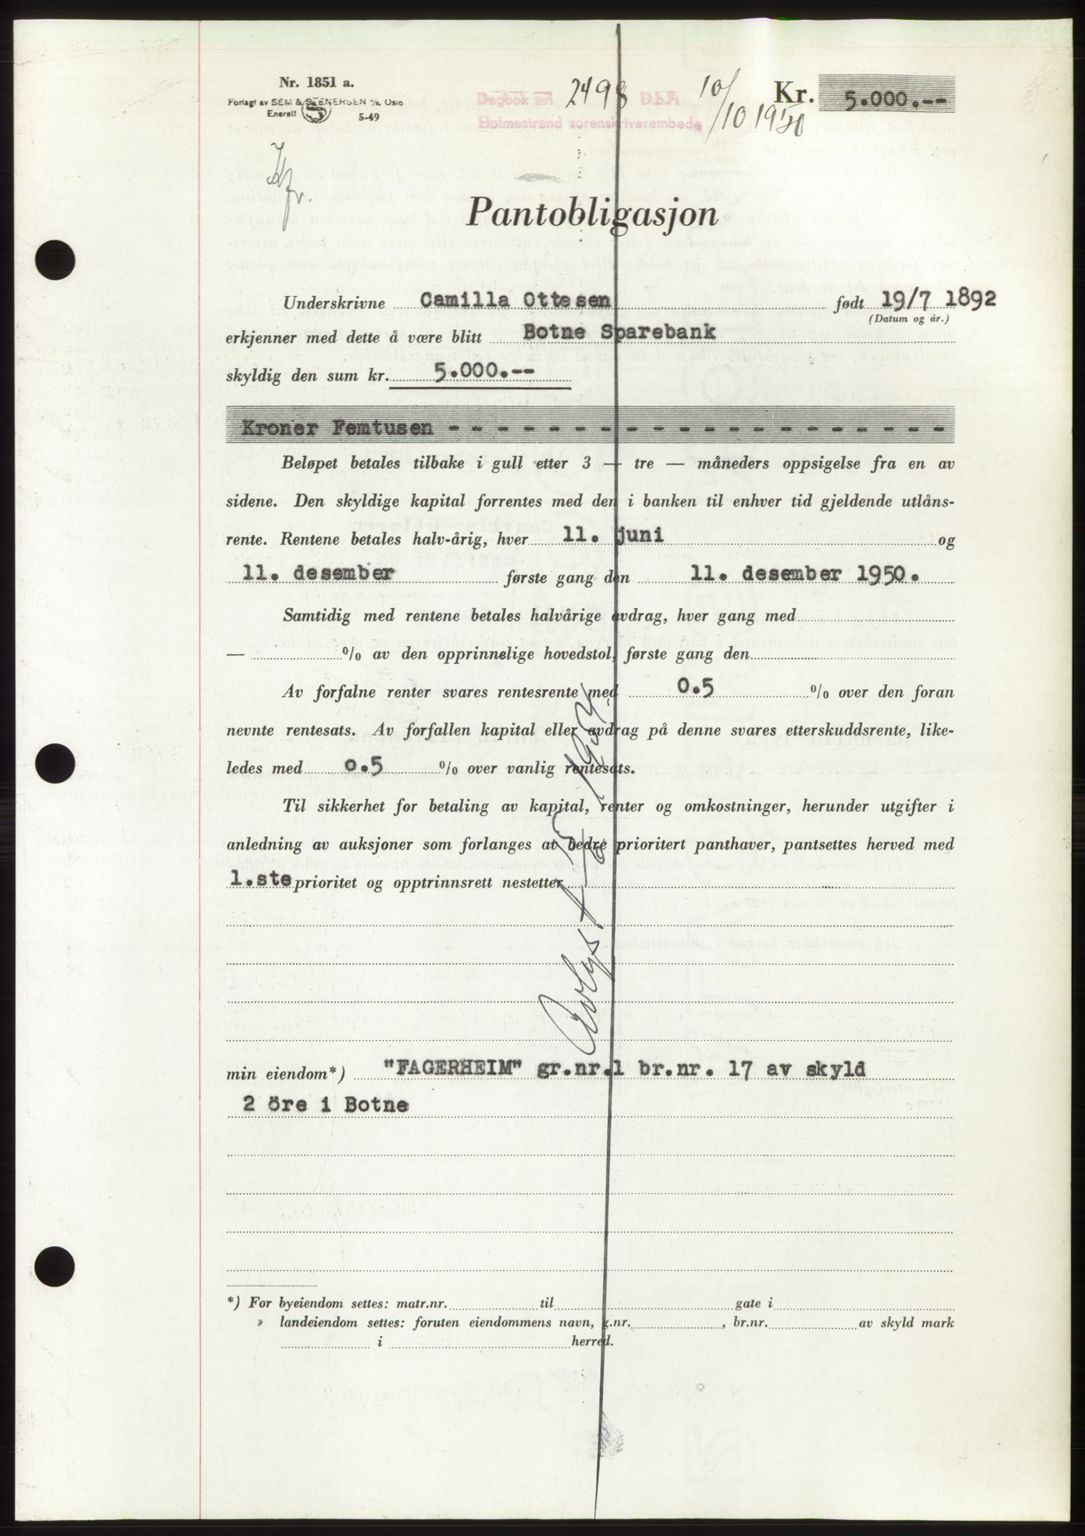 Nr. 1851 a.
Forlagt av SEM & STENERSEN A/S, Oslo
Enerett 5-49
Dagbok nr. 2498 D.b.f.
Holmestrand sorenskriverembede
10/10 1950
Kr. 5.000.--
Pantobligasjon
Underskrivne Camilla Ottesen født 19/7 1892
(Datum og år.)
erkjenner med dette å være blitt Botne Sparebank
skyldig den sum kr. 5.000.--
Kroner Femtusen - - - - - - - - - - - - - - - - - - - -
Beløpet betales tilbake i gull etter 3 — tre — måneders oppsigelse fra en av
sidene. Den skyldige kapital forrentes med den i banken til enhver tid gjeldende utlåns-
rente. Rentene betales halv-årig, hver 11. juni og
11. desember første gang den 11. desember 1950.
Samtidig med rentene betales halvårige avdrag, hver gang med
— % av den opprinnelige hovedstol, første gang den
Av forfalne renter svares rentesrente med 0.5 % over den foran
nevnte rentesats. Av forfallen kapital eller avdrag på denne svares etterskuddsrente, like-
ledes med 0.5 % over vanlig rentesats.
Til sikkerhet for betaling av kapital, renter og omkostninger, herunder utgifter i
anledning av auksjoner som forlanges av bedre prioritert panthaver, pantsettes herved med
1.ste prioritet og opptrinnsrett nestetter
Avlyst
min eiendom*) "FAGERHEIM" gr.nr.1 br.nr. 17 av skyld
2 öre i Botne
*) For byeiendom settes: matr.nr. til gate i
» landeiendom settes: foruten eiendommens navn, g.nr. , br.nr. av skyld mark
i herred.